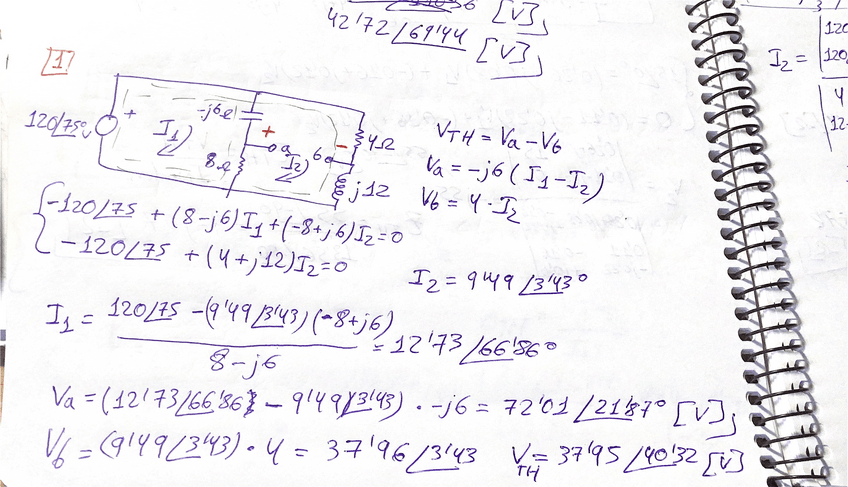 42'72 /69'44 [V]
[V]
1
I2 =
120
120
4
12
120/75º v
+
I1
-j6Ω
8Ω
+
a
I2
b
-
4Ω
j12
VTH = Va - Vb
Va = -j6 (I1 - I2)
Vb = 4 · I2
-120/75 + (8-j6)I1 + (-8+j6)I2 = 0
-120/75 + (4+j12)I2 = 0
I2 = 9'49 /3'43º
I1 = 120/75 - (9'49/3'43)(-8+j6) / 8-j6 = 12'73 /66'86º
Va = (12'73/66'86 - 9'49/3'43) · -j6 = 72'01 /21'87º [V]
Vb = (9'49/3'43) · 4 = 37'96 /3'43 VTH = 37'95 /40'32 [V]